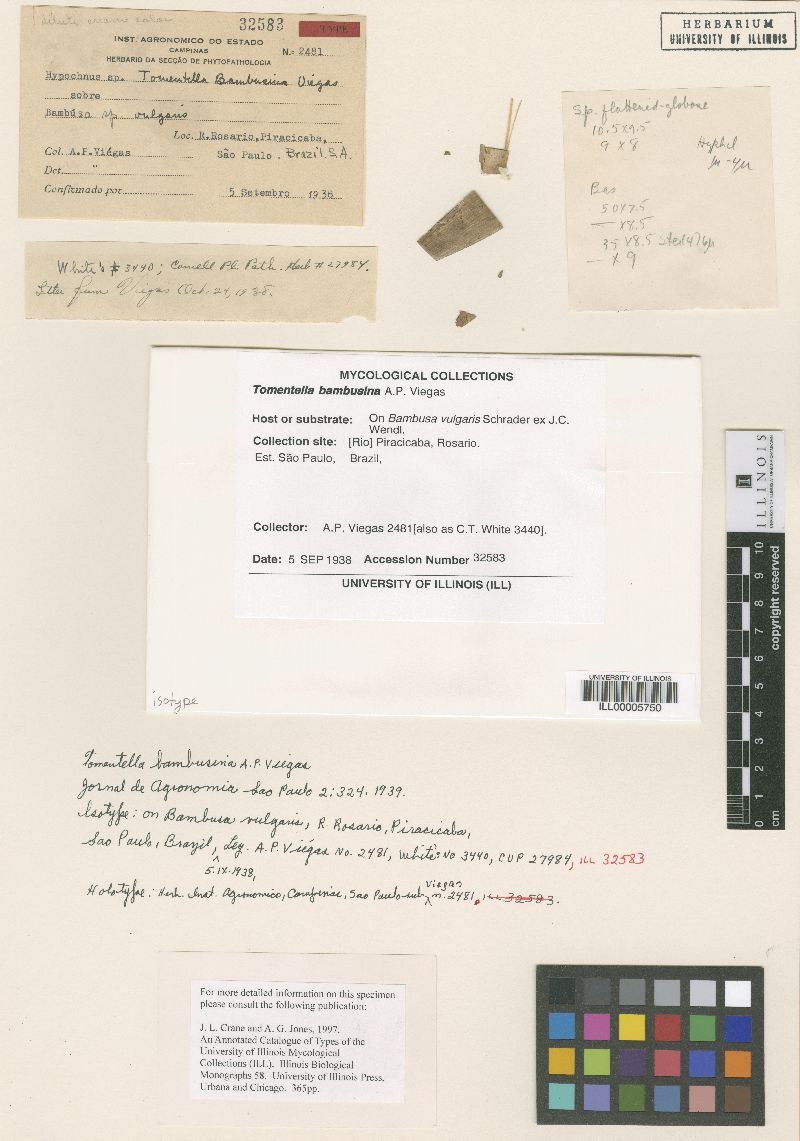 32583
TYPE
INST. AGRONOMICO DO ESTADO
CAMPINAS
N.o 2481
HERBARIO DA SECÇÃO DE PHYTOPATHOLOGIA
Hypochnus sp. Tomentella Bambusina Viégas
sobre
Bambúsa sp vulgaris
Loc. R.Rosario, Piracicaba,
Col. A.P.Viégas São Paulo. Brazil. S.A.
Det. "
Confirmado por 5 Setembro 1938
White's # 3440; Cornell Pl. Path. Herb # 27984.
Letter from Viegas Oct. 24, 1938.
HERBARIUM
UNIVERSITY OF ILLINOIS
Sp. flattened-globose
10.5 x 9.5
9 x 8
Hyphal
Bas
50 x 7.5
— x 8.5
35 x 8.5
— x 9
MYCOLOGICAL COLLECTIONS
Tomentella bambusina A.P. Viegas
Host or substrate: On Bambusa vulgaris Schrader ex J.C.
Wendl.
Collection site: [Rio] Piracicaba, Rosario.
Est. São Paulo, Brazil,
Collector: A.P. Viegas 2481[also as C.T. White 3440].
Date: 5 SEP 1938 Accession Number 32583
UNIVERSITY OF ILLINOIS (ILL)
isotype
UNIVERSITY OF ILLINOIS
ILL00005750
ILLINOIS
10
9
8
7
6
5
4
3
2
1
0
cm
copyright reserved
Tomentella bambusina A.P. Viegas
Jornal de Agronomia - Sao Paulo 2:324. 1939.
Isotype: on Bambusa vulgaris, R. Rosario, Piracicaba,
Sao Paulo, Brazil, Leg. A.P. Viégas No. 2481, White's No 3440, CUP 27984, ILL 32583
5.IX.1938,
Holotype: Herb. Inst. Agronomico, Campinas, Sao Paulo sub Viegas n. 2481, ILL 32583.
For more detailed information on this specimen
please consult the following publication:
J. L. Crane and A. G. Jones, 1997.
An Annotated Catalogue of Types of the
University of Illinois Mycological
Collections (ILL). Illinois Biological
Monographs 58. University of Illinois Press.
Urbana and Chicago. 365pp.